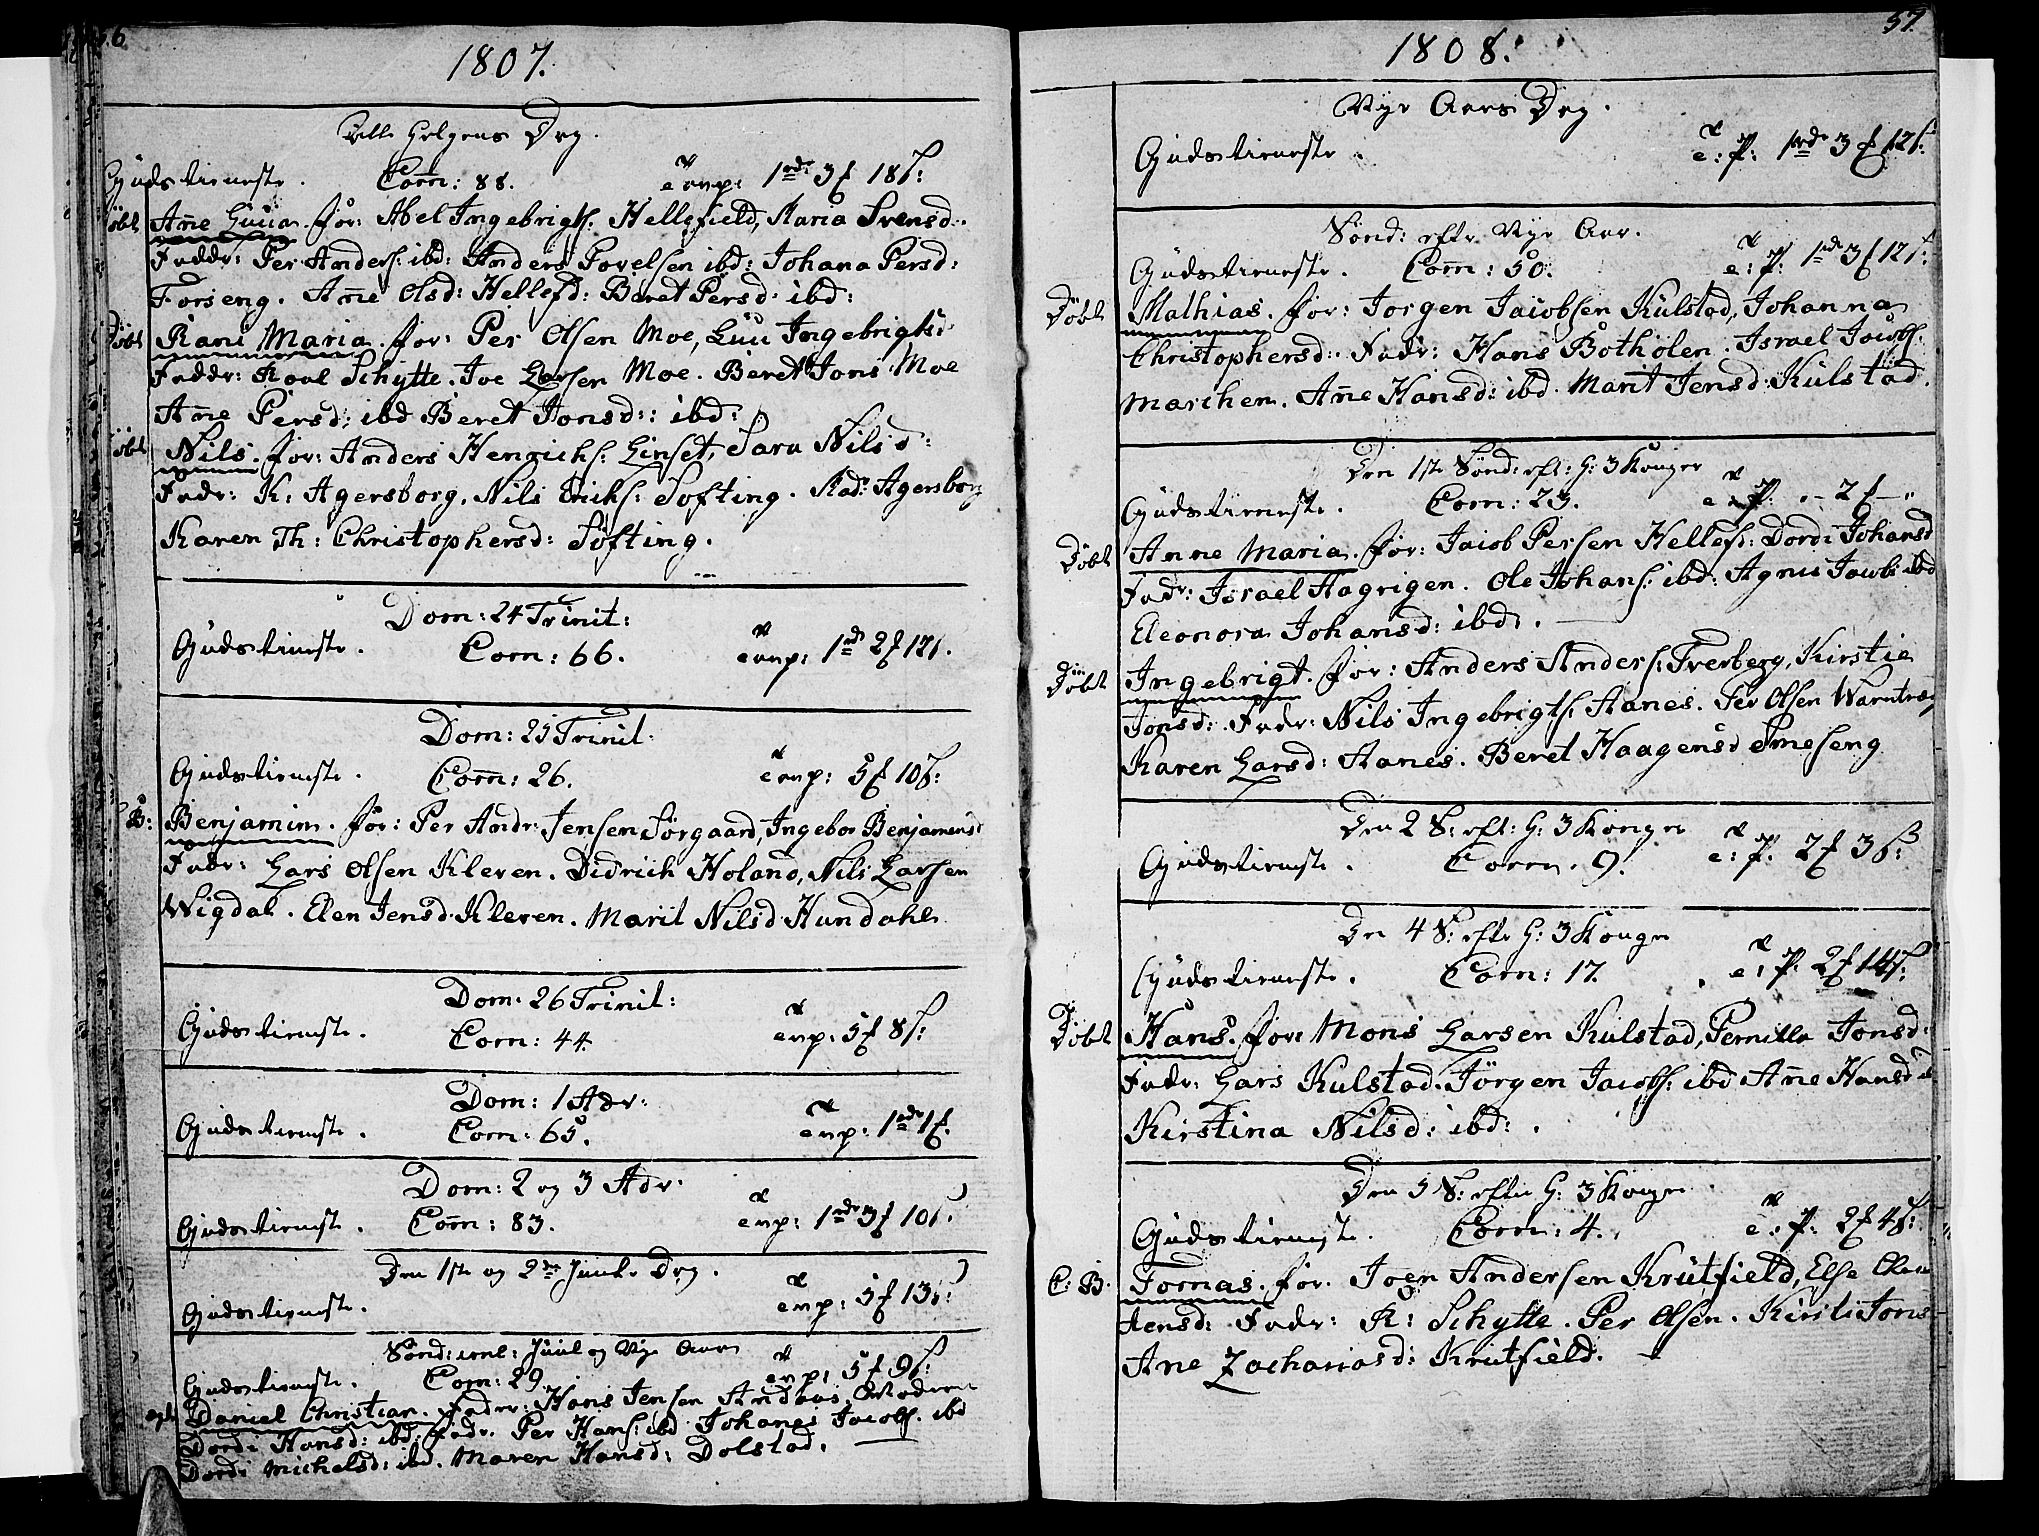 56
1807.
Alle Helgens Dag.
Guds tieneste. Com̄: 88. 1rdr 3 f 18 ß:
Døbt Añe Luua. for: Abel Ingebrigts: Hellefield, Karia Svensd:
Faddr: Per Anders: ibd: Anders Povelsen ibd: Johana Persd:
Forseng. Añe Olsd: Hellefd: Beret Persd: ibd:
Døbt Rani Maria. for: Per Olsen Moe, Luu Ingebrigtsd
Faddr: Roal Schytte. Joe Larsen Moe. Beret Jons: Moe
Añe Persd: ibd Beret Jonsd:: ibd:
Døbt Nils. for: Anders Henrichs: Linset, Sara Nilsd:
Fadr: K: Agersborg, Nils Erichs: Softing. Mad: Agersborg
Karen Th: Christophersd: Söfting.
Dom: 24 Trinit:
Guds tieneste. Com: 66. 1rd 2 f 12 ß.
Dom: 25 Trinit.
Guds tieneste. Com̄: 26. 5 f 10 ß:
B: Benjamin. for: Per Andr: Jensen Sørgaard, Ingebor Benjaminsd
Fadr: Lars Olsen Kleven. Didrich Holand, Nils Larsen
Wigdal. Elen Jensd. Kleven. Marit Nilsd Hundahl
Dom: 26 Trinit:
Guds tieneste. Com: 44. 5 f 8 ß:
Dom: 1 Adv:
Guds tieneste. Com: 65. 1rdr 1 f.
Dom: 2 og 3 Adv:
Guds tieneste. Com̄: 83. 1rdr 3 f 10 ß.
Den 1ste og 2den Juule Dag.
Guds tieneste. 5 f 13 ß:
Sönd: iml: Juul og Nye Aar
Guds tieneste. Com: 29 5 f 9 ß:
Daniel Christian. Fadr: Hans Jensen Andaas, Moderen
Dordi Hansd: ibd: Fadr. Per Hans: ibd Johanes Jacobs. ibd
Dordi Michelsd: ibd. Maren Hansd: Dolstad.
57.
1808.
Nye Aars Dag.
Guds tieneste. e: p: 1rdr 3 f 12 ß:
Sönd: efter Nye Aar.
Guds tieneste. Com̄: 50. e: p: 1rdr 3 f 12 ß.
Døbt Mathias. for: Jorgen Jacobsen Kulstad, Johanna
Christophersd:. Fadr: Hans Botholen. Israel Jacobs:
Marchem. Añe Hansd: ibd. Marit Jensd: Kulstad.
Den 1ste Sönd: eft: H: 3 Konger
Guds tieneste. Com: 23. e. p: . - 2 f - "
Døbt Anne Maria. for: Jacob Persen Hellefd: Dordi Johansd
Fadr: Israel Hagrigen. Ole Johans: ibd: Agnis Jacobs ibd
Eleonora Johansd: ibd:.
Døbt Ingebrigt. for: Anders Anders: Tverberg, Kirstie
Jonsd: Fadr: Nils Ingebrigts: Aanes. Per Olsen Warntræ
Karen Larsd: Aanes. Beret Haagensd
Den 2 S: eft: H: 3 Konger
Guds tieneste. Com. 9. e: p. 2 f 3 ß:
Den 4 S: efter H: 3 Konger
Guds tieneste. Com: 17. e: p: 2 f 14 ß:
Døbt Hans. for: Mons Larsen Kulstad, Pernilla Jonsd:
Fadr: Lars Kulstad. Jörgen Jacobs: ibd Añe Hansd
Kirstina Nilsd: ibd:.
Den 5 S: efter H: 3 Konger.
Guds tieneste. Com: 4. e: p. 2 f 4 ß:
C: B. Tomas. for. Joen Andersen Krutfield, Else
Fadr: R: Schytte. Per Olsen. Kirsti Jons
Ane Zachariasd: Krutfield.